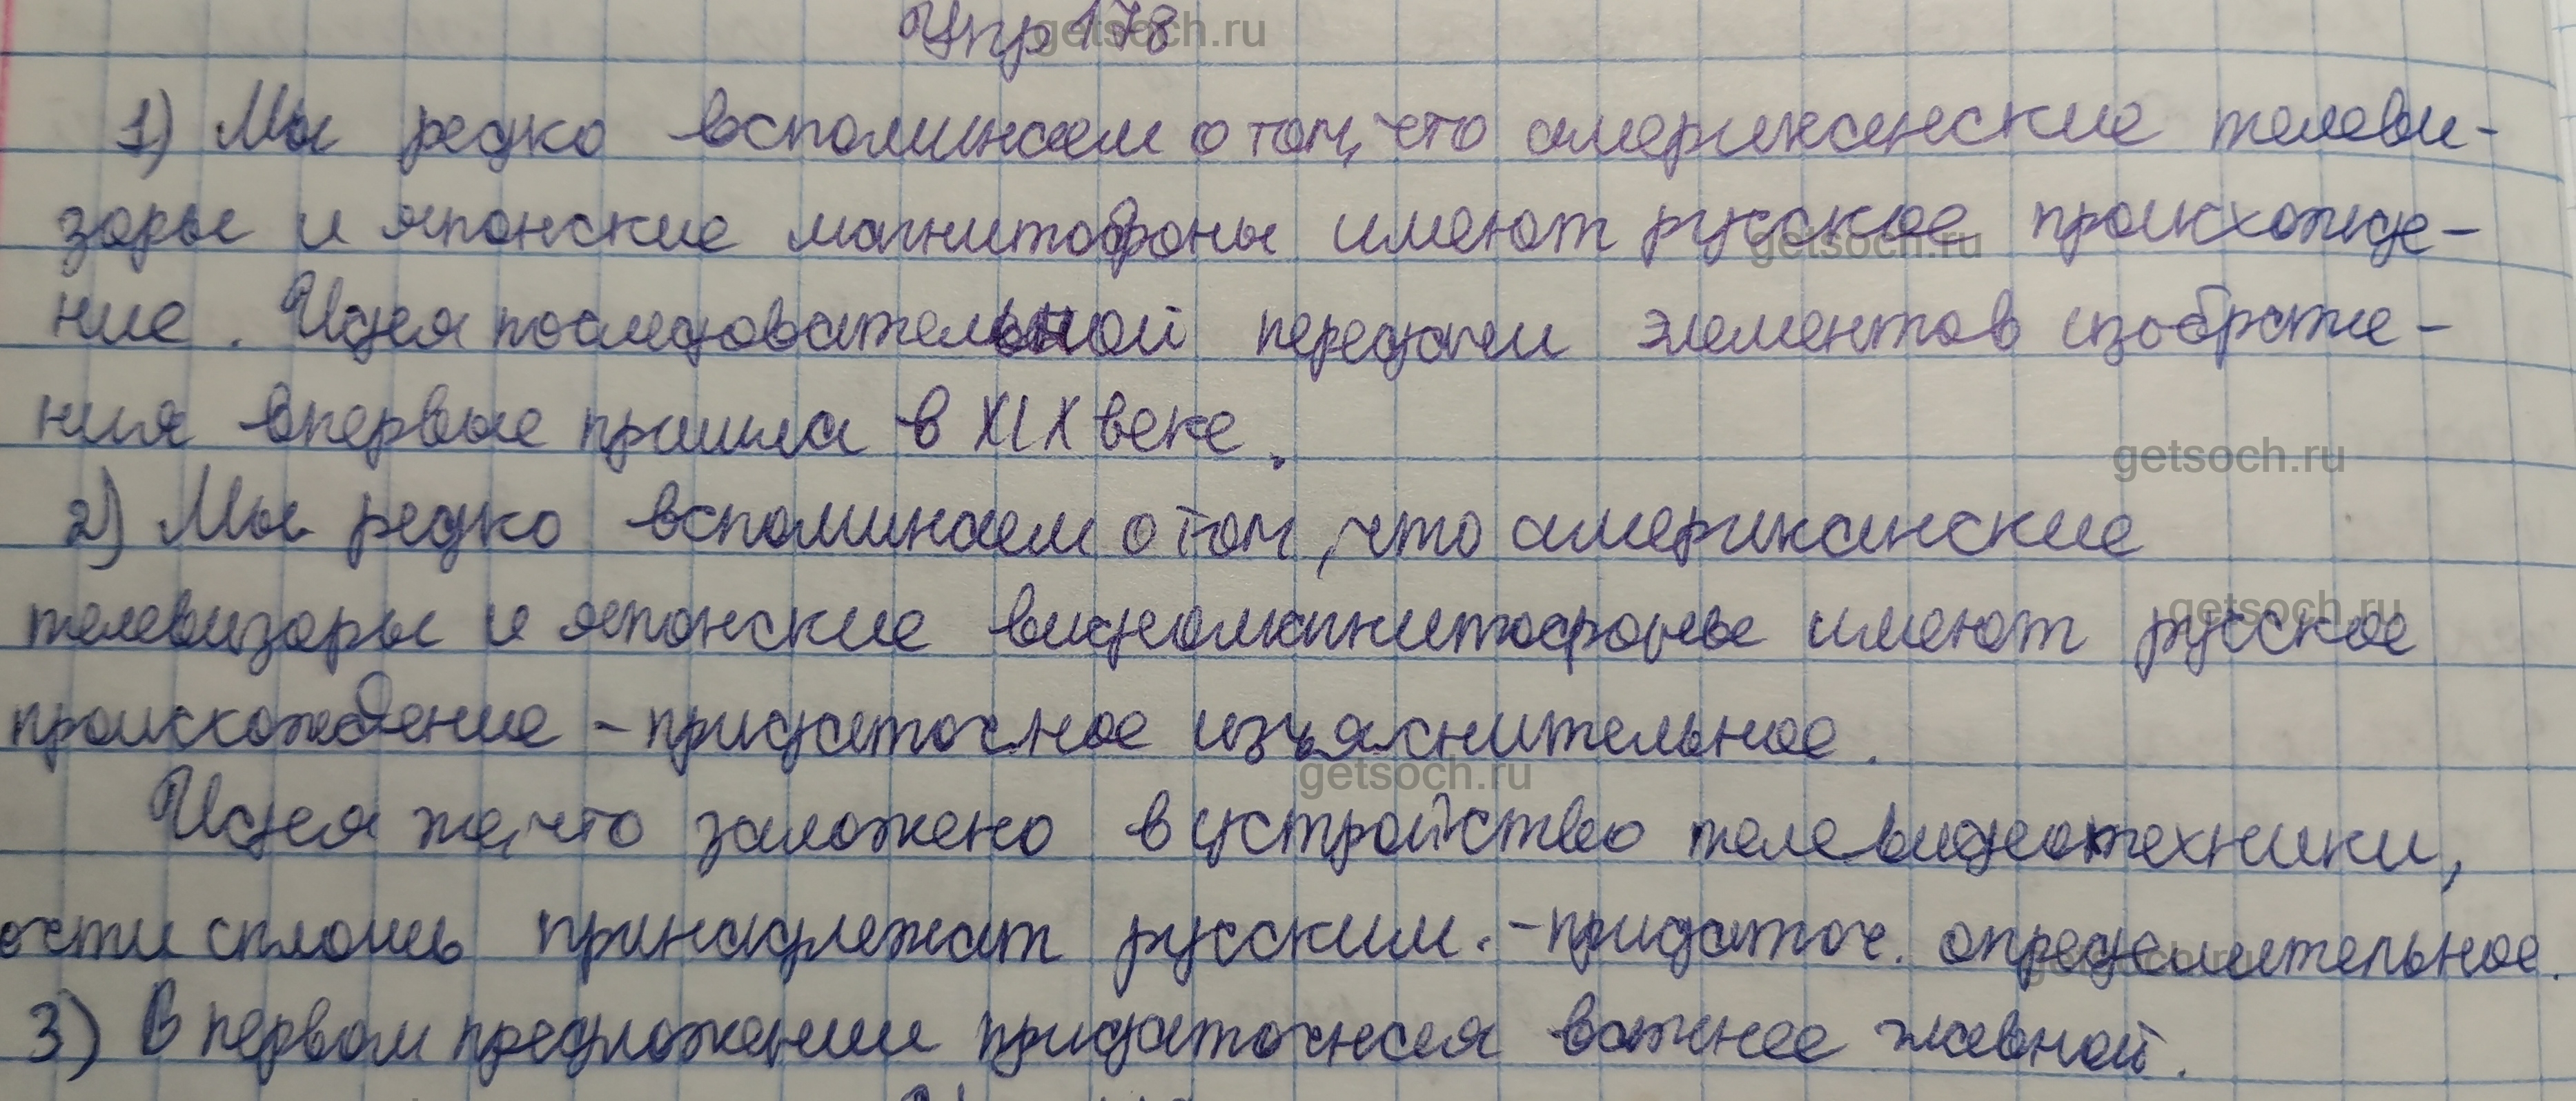 Упр 178
1) Мы редко вспоминаем о том, что американские телеви-
зоры и японские магнитофоны имеют русское происхожде-
ние. Идея последовательной передачи элементов изображе-
ния впервые пришла в XIX веке.
2) Мы редко вспоминаем о том, что американские
телевизоры и японские видеомагнитофоны имеют русское
происхождение - придаточное изъяснительное.
Идея же, что заложено в устройство телевидеотехники,
сплошь принадлежат русским. - придаточ. определительное.
3) В первом предложении придаточная важнее главной.
getsoch.ru
getsoch.ru
getsoch.ru
getsoch.ru
getsoch.ru
getsoch.ru